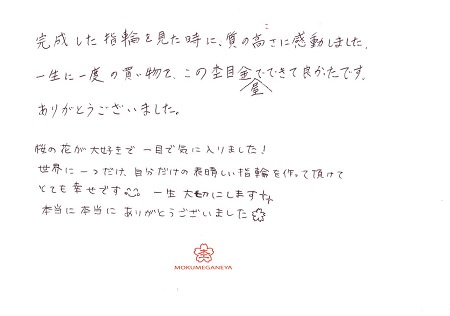 完成した指輪を見た時に、質の高さに感動しました。
一生に一度の買い物で、この杢目金屋でできて良かたです。
ありがとうございました。
桜の花が大好きで一目で気に入りました！
世界に一つだけ、自分だけの素晴しい指輪を作って頂けて
とても幸せです 一生大切にします
本当に本当にありがとうございました
MOKUMEGANEYA